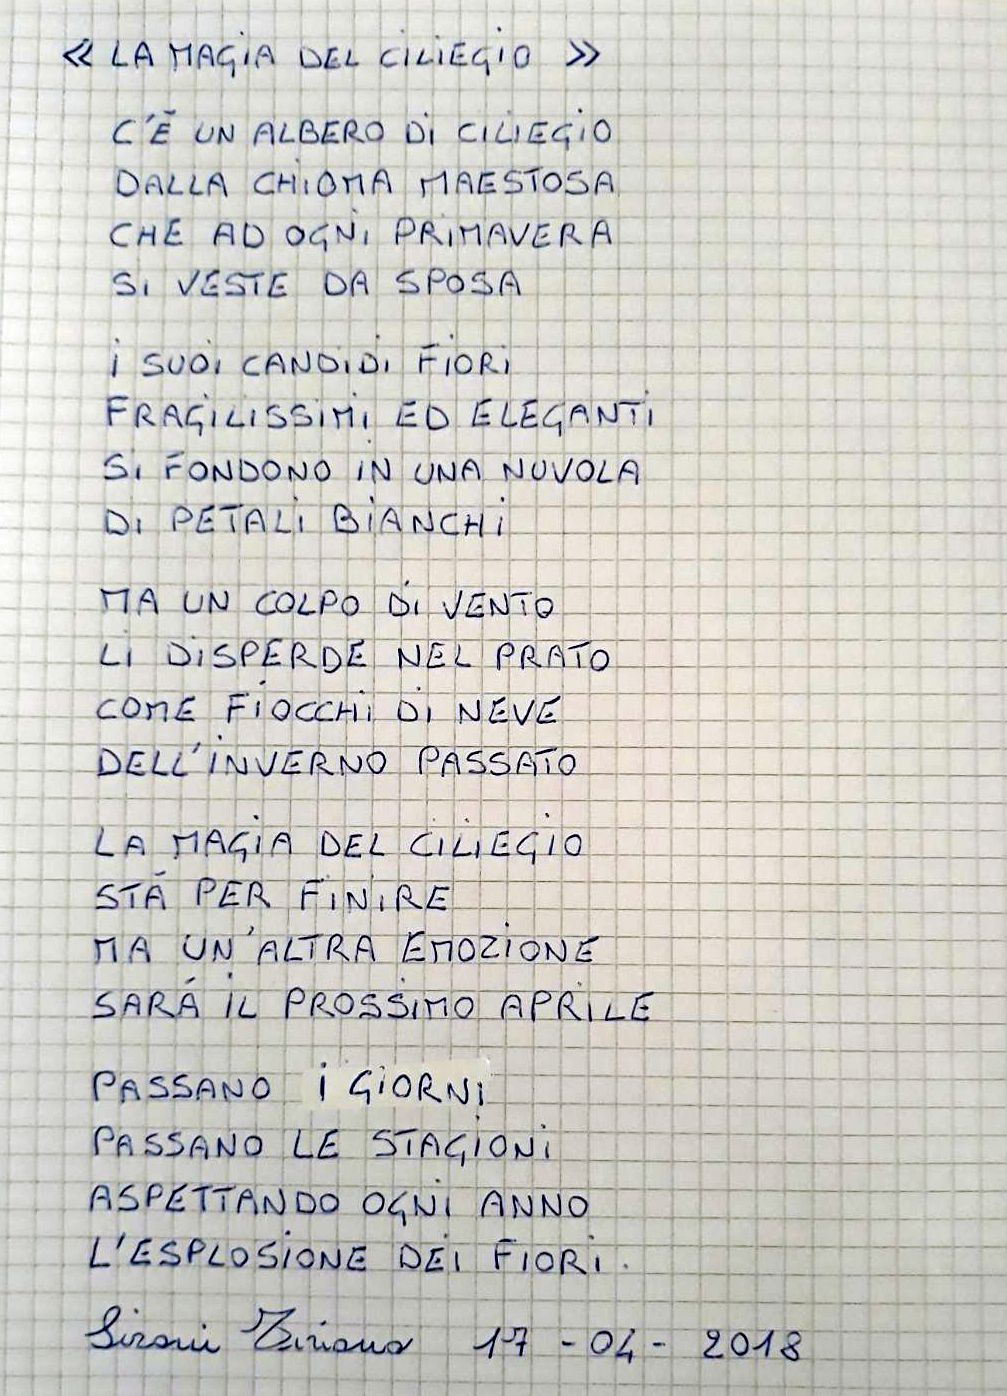 « LA MAGIA DEL CILIEGIO »
C'È UN ALBERO DI CILIEGIO
DALLA CHIOMA MAESTOSA
CHE AD OGNI PRIMAVERA
SI VESTE DA SPOSA
I SUOI CANDIDI FIORI
FRAGILISSIMI ED ELEGANTI
SI FONDONO IN UNA NUVOLA
DI PETALI BIANCHI
MA UN COLPO DI VENTO
LI DISPERDE NEL PRATO
COME FIOCCHI DI NEVE
DELL'INVERNO PASSATO
LA MAGIA DEL CILIEGIO
STÁ PER FINIRE
MA UN'ALTRA EMOZIONE
SARÁ IL PROSSIMO APRILE
PASSANO I GIORNI
PASSANO LE STAGIONI
ASPETTANDO OGNI ANNO
L'ESPLOSIONE DEI FIORI.
Sironi Tiziana 17-04-2018